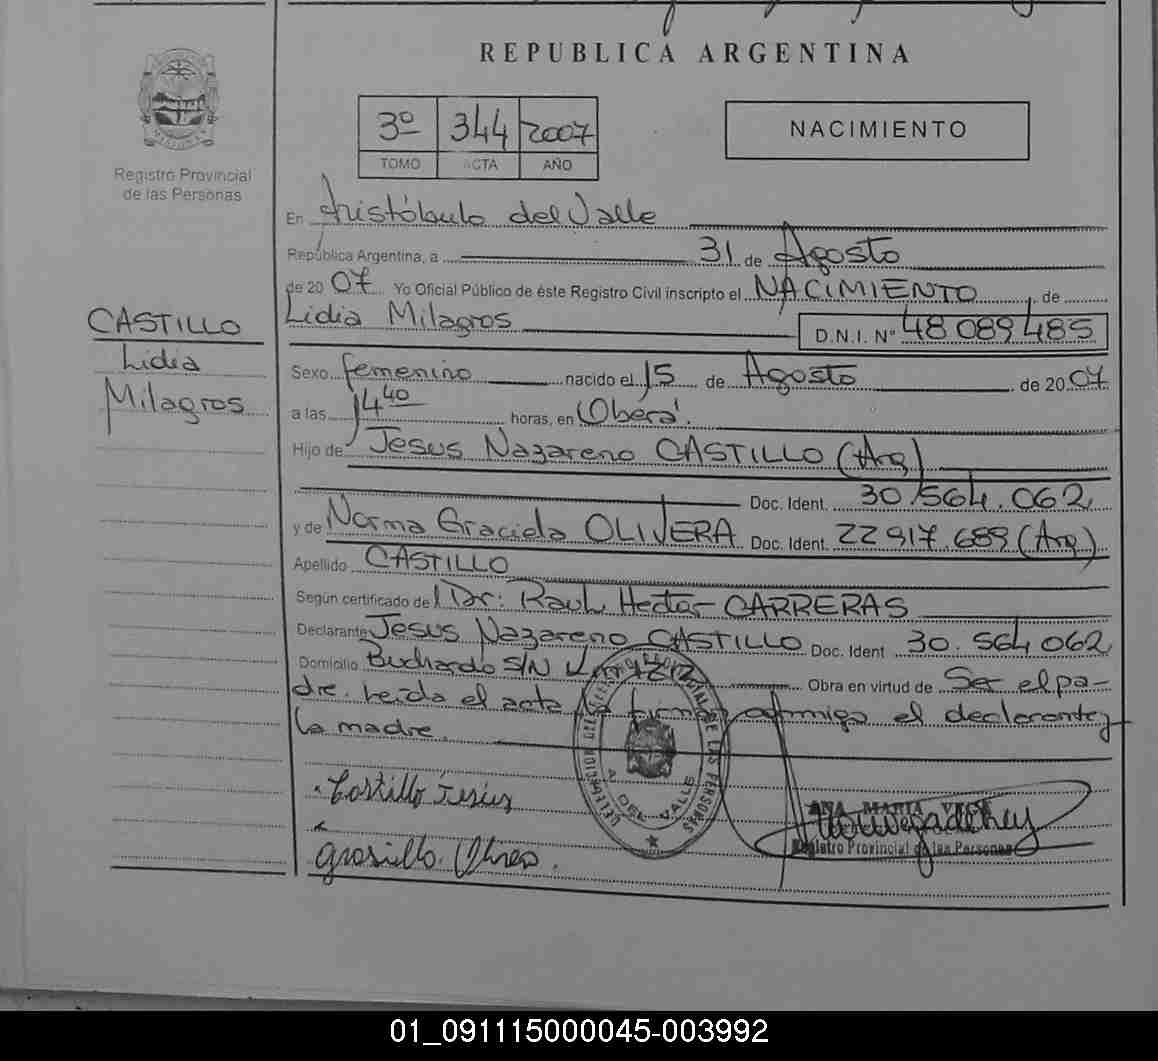 REPUBLICA ARGENTINA
Registro Provincial
de las Personas
3º 344 2007
TOMO ACTA AÑO
NACIMIENTO
CASTILLO
Lidia
Milagros
En Aristóbulo del Valle
República Argentina, a 31 de Agosto
de 2007 Yo Oficial Público de éste Registro Civil inscripto el NACIMIENTO de
Lidia Milagros D.N.I. Nº 48 089 485
Sexo femenino nacido el 15 de Agosto de 2007
a las 14 40 horas, en Oberá.
Hijo de Jesus Nazareno CASTILLO (Arg)
Doc. Ident. 30.564.062
y de Norma Graciela OLIVERA Doc. Ident. 22 917.689 (Arg)
Apellido CASTILLO
Según certificado del Dr: Raul Hector CARRERAS
Declarante Jesus Nazareno CASTILLO Doc. Ident 30.564 062
Domicilio S/N Obra en virtud de Ser el pa-
dre. Leída el acta la firman conmigo el declarante y
la madre.
Castillo Jesus
A. DEL VALLE
DE LAS PERSONAS
ANA MARIA
Registro Provincial de las Personas
01_091115000045-003992